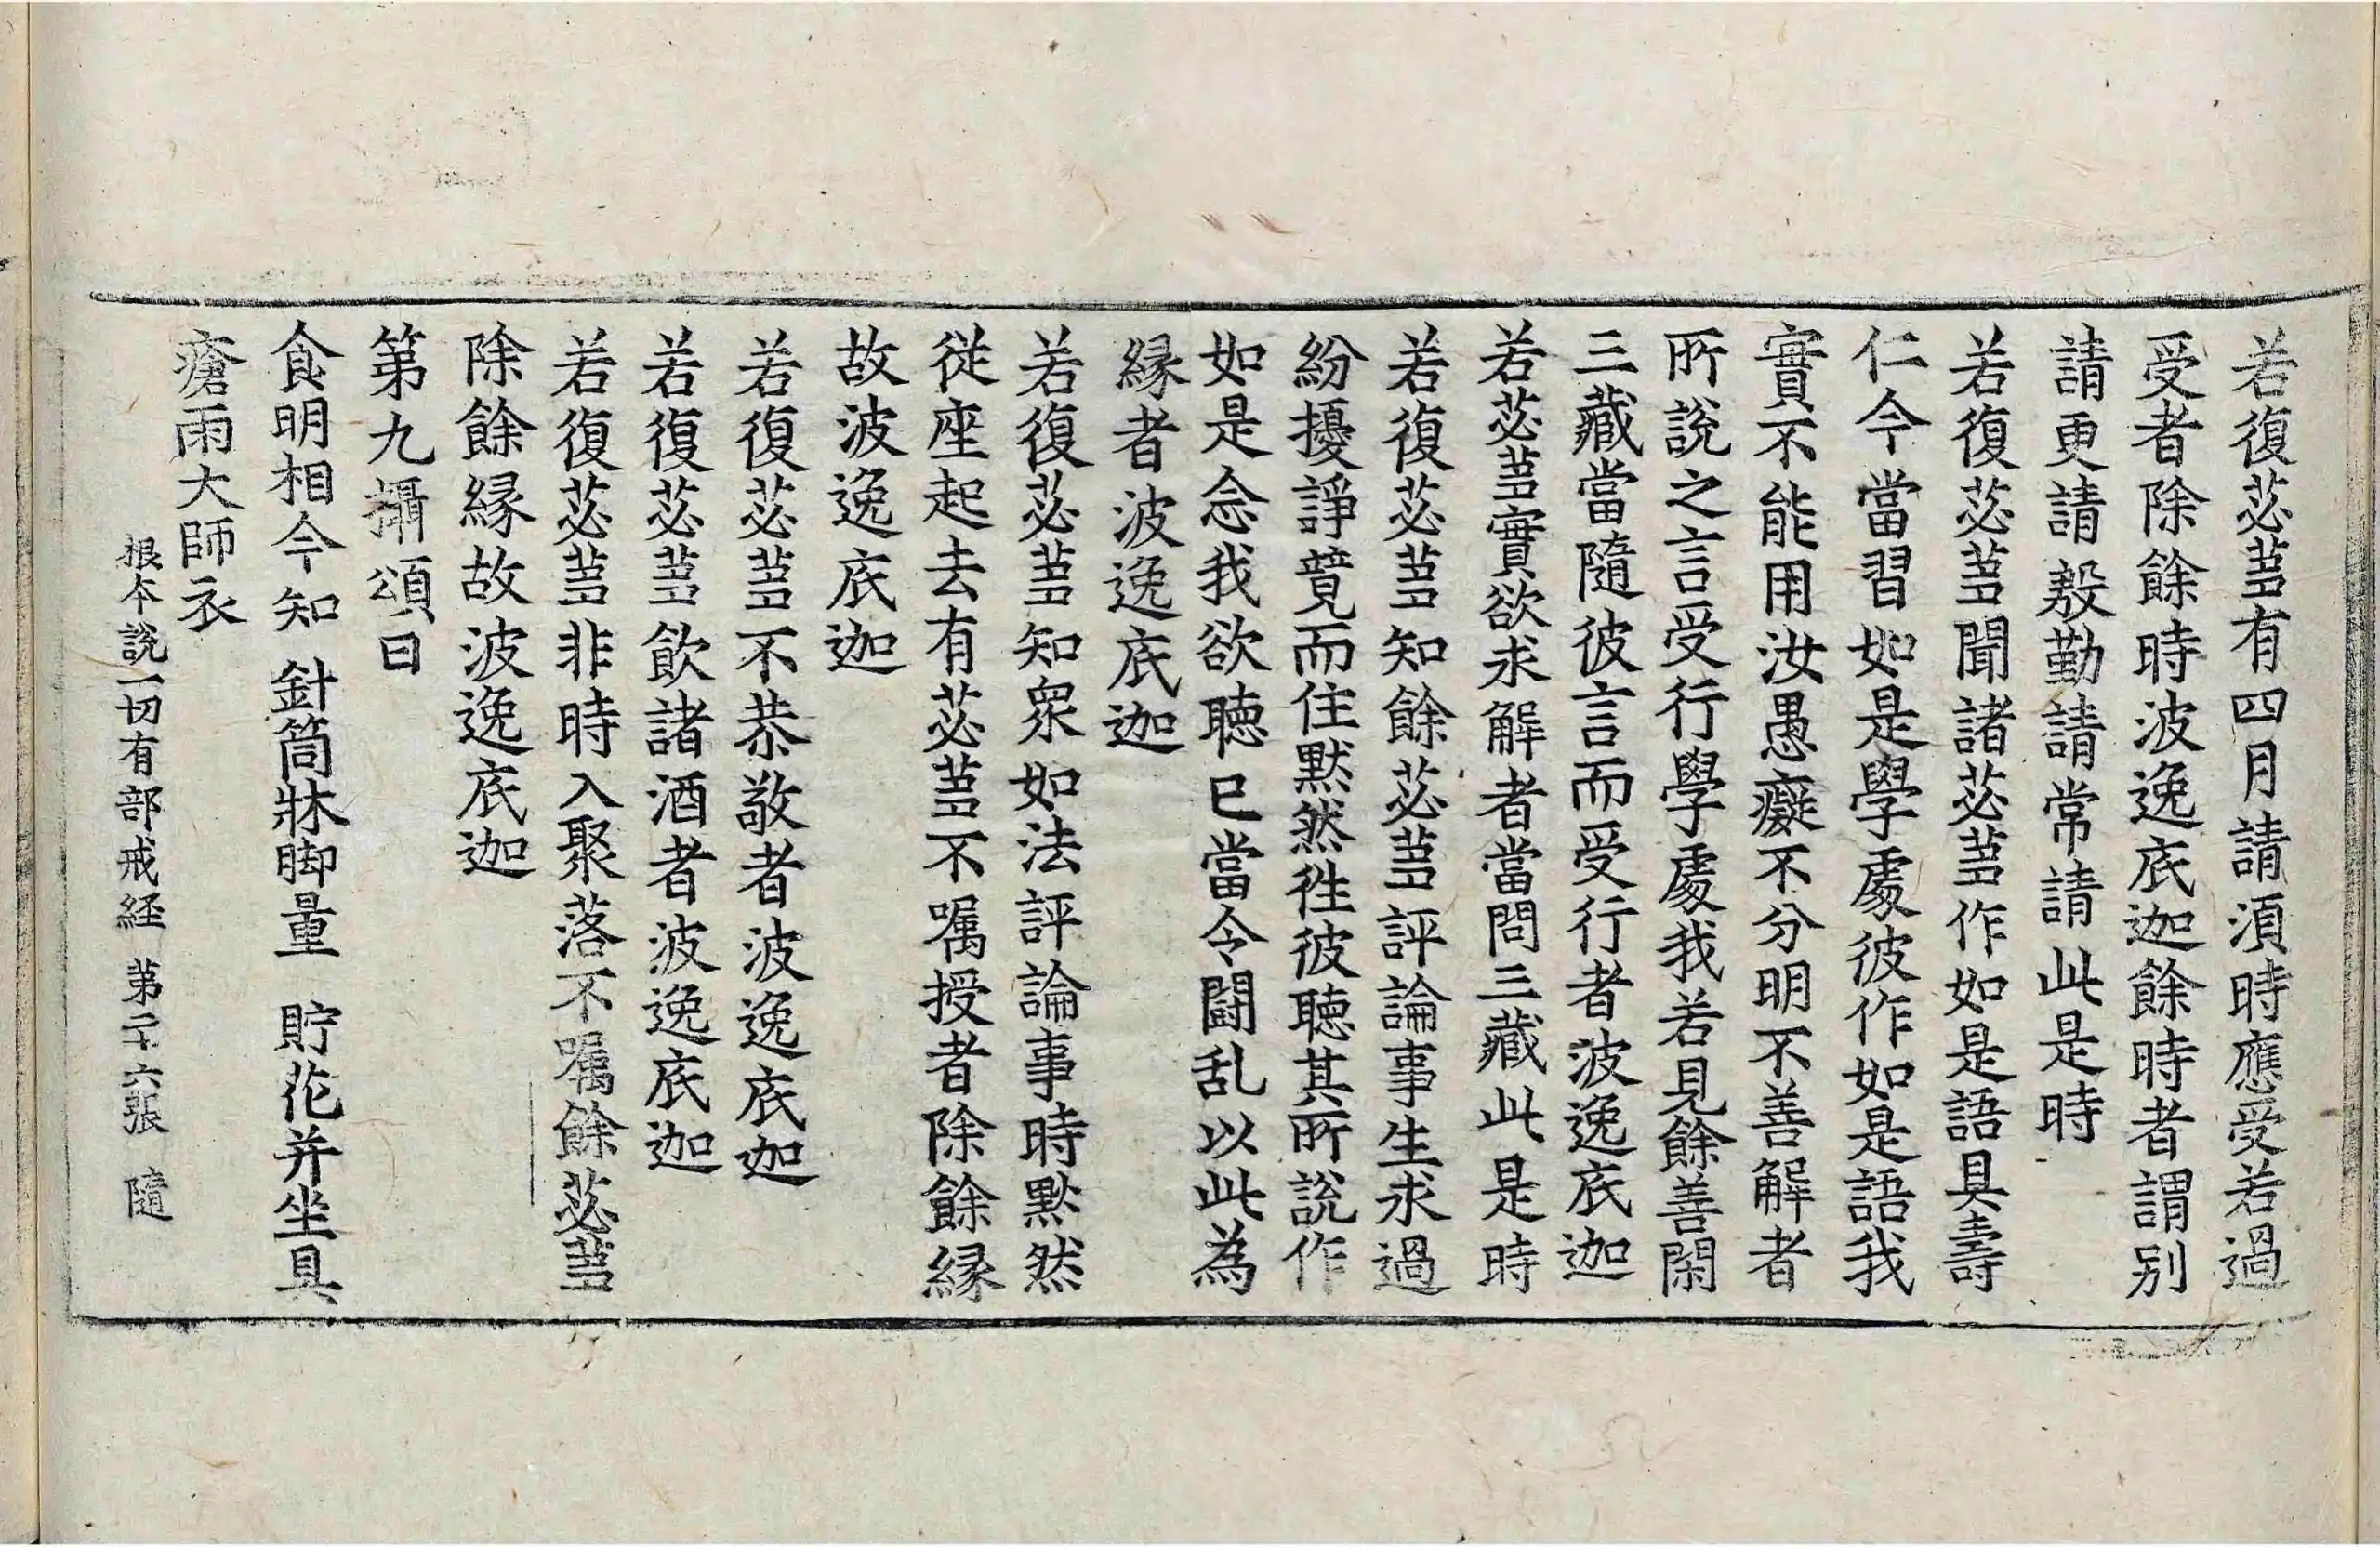 若復苾蒭有四月請湏時應受若過
受者除餘時波逸底迦餘時者謂別
請更請殷勤請常請此是時
若復苾蒭聞諸苾蒭作如是語具壽
仁今當習如是學處彼作如是語我
實不能用汝愚癡不分明不善解者
所說之言受行學處我若見餘善閑
三藏當隨彼言而受行者波逸底迦
若苾蒭實欲求解者當問三藏此是時
若復苾蒭知餘苾蒭評論事生求過
紛擾諍競而住默然徃彼聴其所說作
如是念我欲聴已當令鬪乱以此為
縁者波逸底迦
若復苾蒭知衆如法評論事時默然
從座起去有苾蒭不囑授者除餘縁
故波逸底迦
若復苾蒭不恭敬者波逸底迦
若復苾蒭飲諸酒者波逸底迦
若復苾蒭非時入聚落不囑餘苾蒭
除餘縁故波逸底迦
第九攝頌曰
食明相今知 針筒牀脚量 貯花并坐具
瘡雨大師衣
根本說一切有部戒経 第二十六張 隨